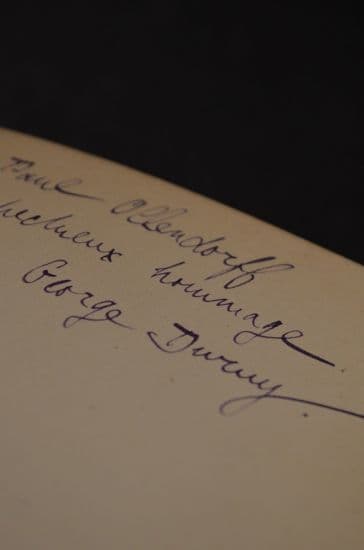 Paul Ollendorff
hommage
George Duruy.